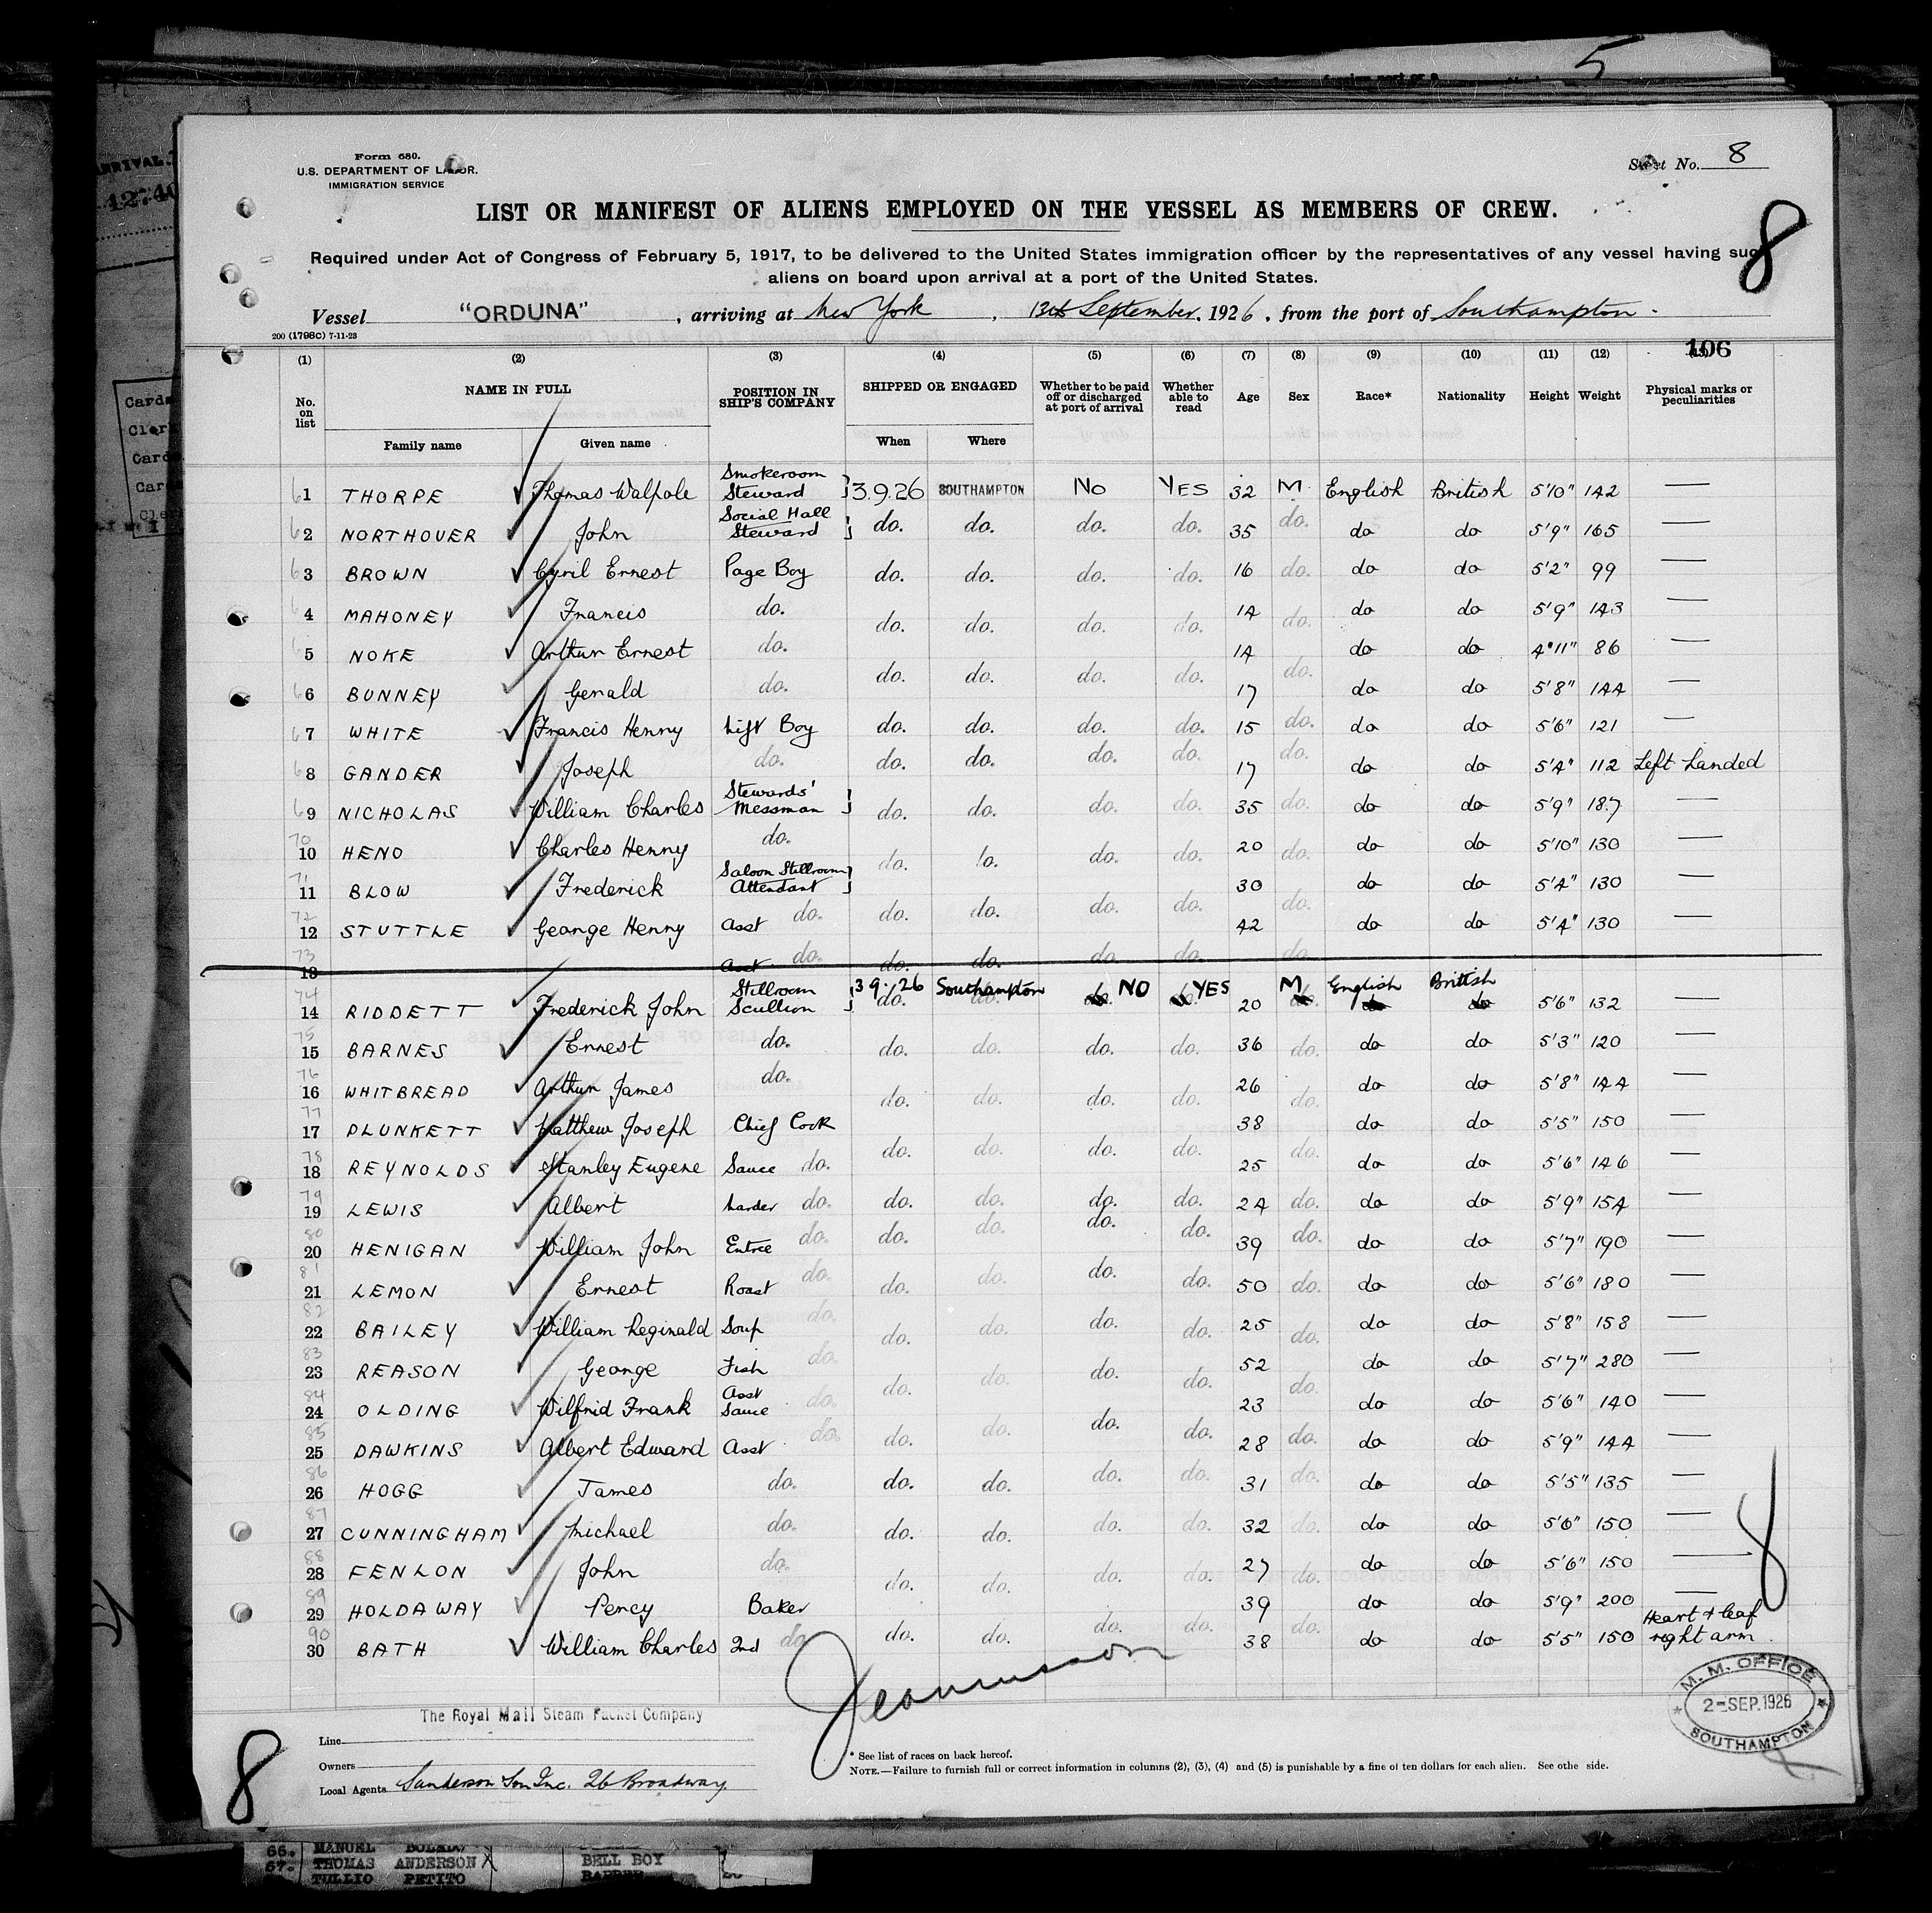 5
Form 680.
U.S. DEPARTMENT OF LABOR.
IMMIGRATION SERVICE
Sheet No. 8
8
LIST OR MANIFEST OF ALIENS EMPLOYED ON THE VESSEL AS MEMBERS OF CREW.
Required under Act of Congress of February 5, 1917, to be delivered to the United States immigration officer by the representatives of any vessel having such
aliens on board upon arrival at a port of the United States.
Vessel "ORDUNA", arriving at New York, 13th September, 1926, from the port of Southampton.
200 (1798C) 7-11-23
106
(1) (2) (3) (4) (5) (6) (7) (8) (9) (10) (11) (12)
No. on list NAME IN FULL POSITION IN SHIP'S COMPANY SHIPPED OR ENGAGED Whether to be paid off or discharged at port of arrival Whether able to read Age Sex Race* Nationality Height Weight Physical marks or peculiarities
Family name Given name When Where
61 1 THORPE Thomas Walpole Smokeroom Steward 3.9.26 SOUTHAMPTON No YES 32 M English British 5'10" 142 —
62 2 NORTHOVER John Social Hall Steward do. do. do. do. 35 do. do do 5'9" 165 —
63 3 BROWN Cyril Ernest Page Boy do. do. do. do. 16 do. do do 5'2" 99 —
4 MAHONEY Francis do. do. do. do. do. 14 do. do do 5'9" 143 —
5 NOKE Arthur Ernest do. do. do. do. do. 14 do. do do 4'11" 86 —
66 6 BUNNEY Gerald do. 17 do do 5'8" 144 —
67 7 WHITE Francis Henry Lift Boy do. do. do. do. 15 do. do do 5'6" 121 —
68 8 GANDER Joseph do. do. do. do. do. 17 do. do do 5'4" 112 Left handed
69 9 NICHOLAS William Charles Stewards' Messman do. do. do. do. 35 do. do do 5'9" 187 —
70 10 HENO Charles Henry do. do. do. do. do. 20 do. do do 5'10" 130 —
71 11 BLOW Frederick Saloon Stillroom Attendant 30 do do 5'4" 130 —
72 12 STUTTLE George Henry Asst do. do. do. do. do. 42 do. do do 5'4" 130 —
73 13 Asst do. do. do. do. do. do.
74 14 RIDDETT Frederick John Stillroom Scullion 3.9.26 Southampton NO YES 20 M English British 5'6" 132 —
75 15 BARNES Ernest do. do. do. do. do. 36 do. do do 5'3" 120 —
76 16 WHITBREAD Arthur James do. do. do. do. do. 26 do. do do 5'8" 144 —
77 17 PLUNKETT Matthew Joseph Chief Cook 38 do do 5'5" 150 —
78 18 REYNOLDS Stanley Eugene Sauce do. do. do. do. do. 25 do. do do 5'6" 146 —
79 19 LEWIS Albert Larder do. do. do. do. do. 24 do. do do 5'9" 154 —
80 20 HENIGAN William John Entree do. do. do. do. do. 39 do. do do 5'7" 190 —
81 21 LEMON Ernest Roast do. do. do. do. do. 50 do. do do 5'6" 180 —
82 22 BAILEY William Reginald Soup do. do. do. do. do. 25 do. do do 5'8" 158 —
83 23 REASON George Fish do. do. do. do. do. 52 do. do do 5'7" 280 —
84 24 OLDING Wilfrid Frank Asst Sauce do. 23 do do 5'6" 140 —
85 25 DAWKINS Albert Edward Asst do. do. do. do. do. 28 do. do do 5'9" 144 —
86 26 HOGG James do. do. do. do. do. 31 do. do do 5'5" 135 —
87 27 CUNNINGHAM Michael do. do. do. do. do. 32 do. do do 5'6" 150 —
88 28 FENLON John do. do. do. do. do. 27 do. do do 5'6" 150 —
89 29 HOLDAWAY Percy Baker 39 do do 5'9" 200 —
90 30 BATH William Charles 2nd do. do. do. do. do. 38 do. do do 5'5" 150 Heart & leaf right arm.
8
M. M. OFFICE
2-SEP.1926
SOUTHAMPTON
The Royal Mail Steam Packet Company
Line
Owners
Local Agents Sanderson & Son Inc. 26 Broadway.
8
* See list of races on back hereof.
NOTE.—Failure to furnish full or correct information in columns (2), (3), (4) and (5) is punishable by a fine of ten dollars for each alien. See othe side.
66. MANUEL
67. THOMAS ANDERSON X BELL BOY
TULLIO PETITO